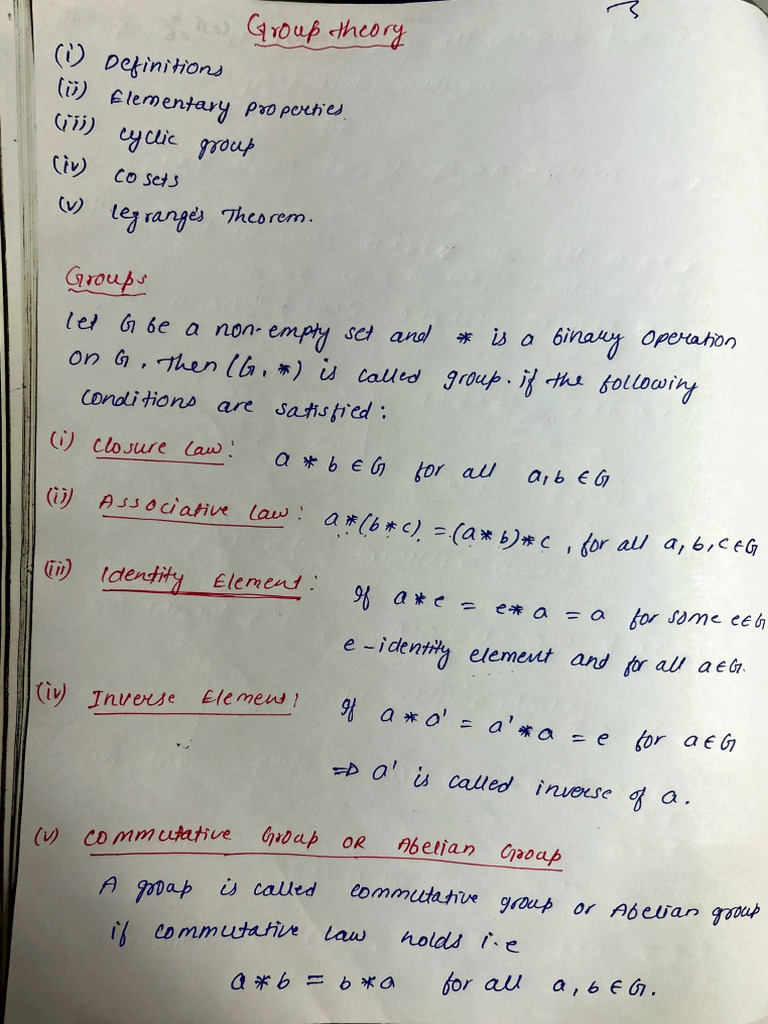 Group theory
(i) Definitions
(ii) Elementary properties
(iii) cyclic group
(iv) cosets
(v) legrange's Theorem.
Groups
let G be a non-empty set and * is a binary operation
on G, then (G, *) is called group. if the following
conditions are satisfied:
(i) closure law: a * b ∈ G for all a, b ∈ G
(ii) Associative law: a*(b*c) = (a*b)*c, for all a, b, c ∈ G
(iii) Identity Element: If a*e = e*a = a for some e∈G
e - identity element and for all a ∈ G.
(iv) Inverse Element: If a * a' = a' * a = e for a ∈ G
⇒ a' is called inverse of a.
(v) commutative Group OR Abelian Group
A group is called commutative group or Abelian group
if commutative law holds i.e
a * b = b * a for all a, b ∈ G.